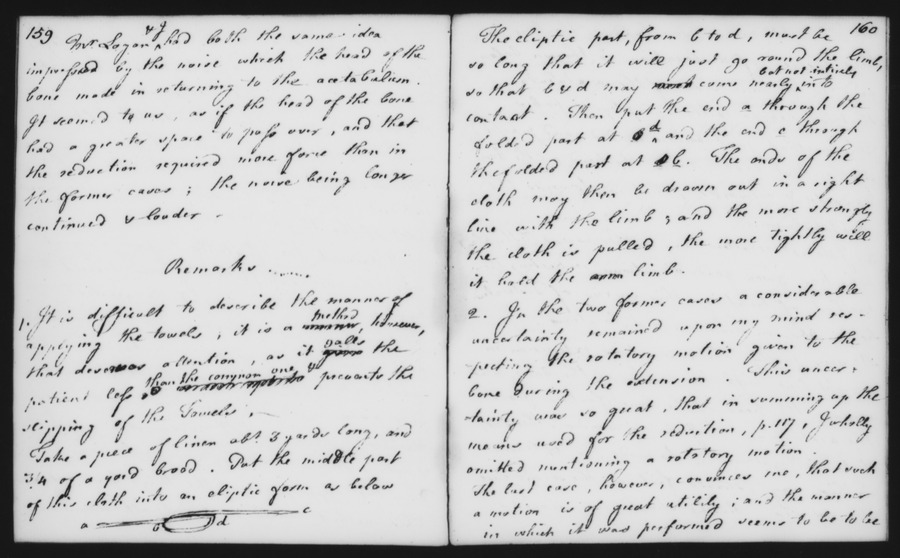 159
Mr. Logan & I had both the same idea
impressed by the noise which the head of the
bone made in returning to the acetabulum.
It seem'd to us, as if the head of the bone
had a greater space to pass over, and that
the reduction required more force than in
the former cases; the noise being longer
continued & louder.
Remarks
1. It is difficult to describe the manner of
applying the towels, it is a method, however,
that deserves attention, as it galls the
patient less than the common one & prevents the
slipping of the Towels.
Take a piece of linen abt. 3 yards long, and
3/4 of a yard broad. Put the middle part
of this cloth into an eliptic form as below
a b d c
160
The eliptic part, from b to d, must be
so long that it will just go round the limb,
so that b & d may come nearly but not intirely into
contact. Then put the end a through the
folded part at d and the end c through
the folded part at b. The ends of the
cloth may then be drawn out in a right
line with the limb; and the more strongly
the cloth is pulled, the more tightly will
it hold the limb.
2. In the two former cases a considerable
uncertainty remained upon my mind res-
pecting the rotatory motion given to the
bone during the extension. This uncer-
tainty was so great, that in summing up the
means used for the reduction, p. 117, I wholly
omitted mentioning a rotatory motion.
The last case, however, convinces me, that such
a motion is of great utility; and the manner
in which it was performed seems to be to be